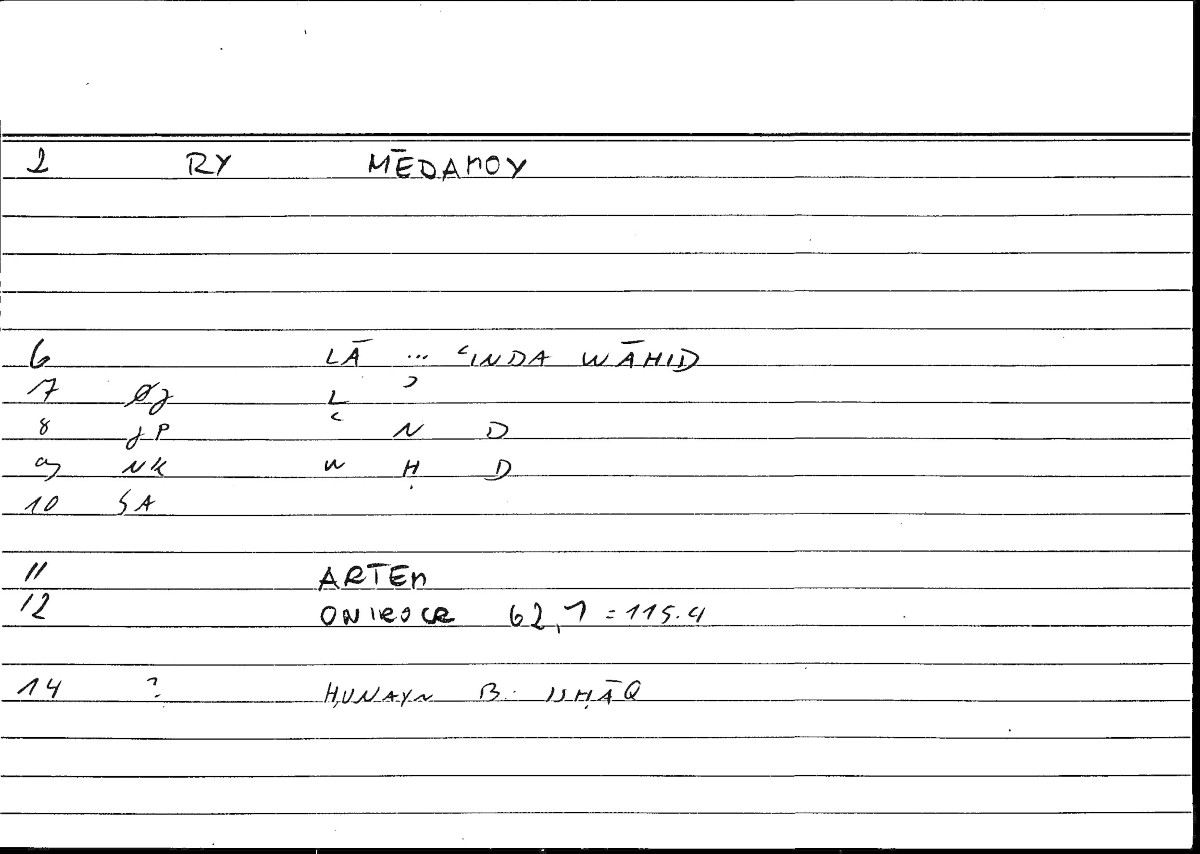 2 RY MĒDAMOY
6 LĀ ... ʿINDA WĀHID
7 Øj L ʾ
8 jP ʿ N D
9 NK W Ḥ D
10 SA
11 ARTEM
12 ONIROCR 62,1 = 115.4
14 ? ḤUNAYN B. ISḤĀQ